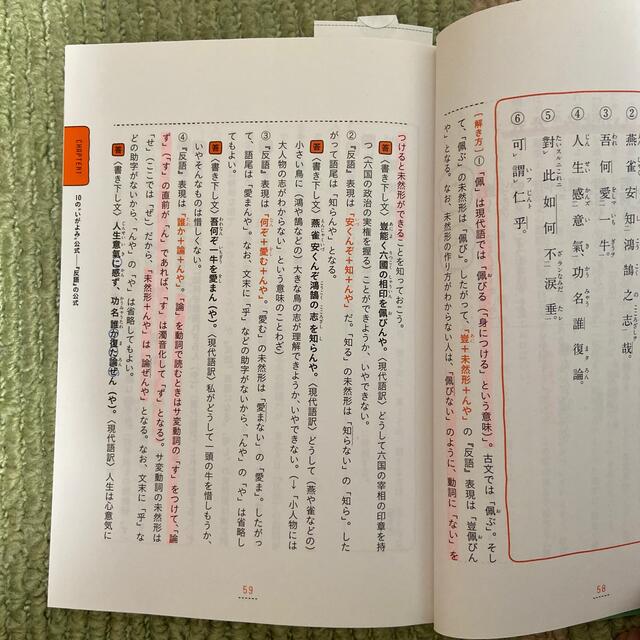 ②燕雀安知鴻鵠之志哉
③吾何愛一牛
④人生感意氣功名誰復論
⑤對此如何不淚垂
⑥可謂仁乎。
〔解き方〕①「佩」は現代語では「佩びる(「身につける」という意味)」。古文では「佩ぶ」。そし
て、「佩ぶ」の未然形は「佩び」。したがって、「豈+未然形+んや」の『反語』表現は「豈佩びん
や」となる。なお、未然形の作り方がわからない人は、「佩びない」のように、動詞に「ない」を
58
つけると未然形ができることを知っておこう。
答〈書き下し文〉豈能く六國の相印を佩びんや。〈現代語訳〉どうして六国の宰相の印章を持
つ(六国の政治の実権を握る)ことができようか、いやできない。
②『反語』表現は「安くんぞ+知+んや」だ。「知る」の未然形は「知らない」の「知ら」。した
がって語尾は「知らんや」となる。
答〈書き下し文〉燕雀安くんぞ鴻鵠の志を知らんや。〈現代語訳〉どうして(燕や雀などの)
小さい鳥に(鴻や鵠などの)大きな鳥の志が理解できようか、いやできない。(→「小人物には
大人物の志がわからない」という意味のことわざ)
③『反語』表現は「何ぞ+愛む+んや」。「愛む」の未然形は「愛まない」の「愛ま」。したがっ
て、語尾は「愛まんや」。なお、文末に「乎」などの助字がないから、「んや」の「や」は省略し
てもよい。
答〈書き下し文〉吾何ぞ一牛を愛まん(や)。〈現代語訳〉私がどうして一頭の牛を惜しもうか、
いやそんなものは惜しくない。
④『反語』表現は「誰か+論+んや」。「論」を動詞で読むときはサ変動詞の「す」をつけて、「論
ず」(「す」の直前が「ん」であれば、「す」は濁音化して「ず」となる)。サ変動詞の未然形は
「せ」(ここでは「ぜ」)だから、「未然形+んや」は「論ぜんや」となる。なお、文末に「乎」な
どの助字がないから、「んや」の「や」は省略してもよい。
答〈書き下し文〉人生意氣に感ず、功名誰か復た論ぜん(や)。〈現代語訳〉人生は心意気に
CHAPTER1
10の“いがよみ”公式――『反語』の公式
59